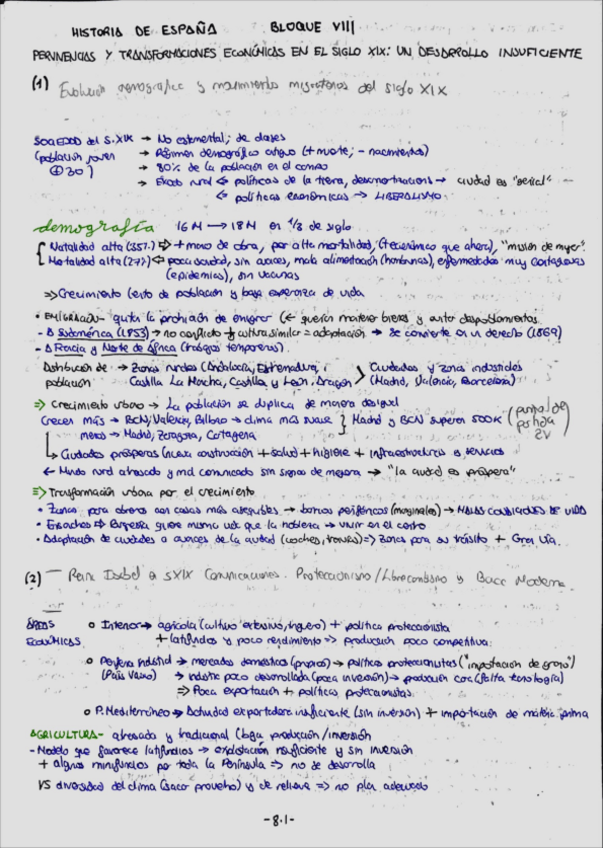 HISTORIA DE ESPAÑA BLOQUE VIII
PERVIVENCIAS Y TRANSFORMACIONES ECONÓMICAS EN EL SIGLO XIX: UN DESARROLLO INSUFICIENTE
(1) Evolución demográfica y movimientos migratorios del siglo XIX
SOCIEDAD del S.XIX → No estamental; de clases
(población joven → Régimen demográfico antiguo (+ muerte; - nacimientos)
⊕30) → 80% de la población en el campo
→ Éxodo rural ⇐ políticas de la tierra, desamortización → ciudad es "genial"
⇐ políticas económicas → LIBERALISMO
demografía 16M → 18M en 1/3 de siglo
Natalidad alta (35%) ⇒ + mano de obra, por alta mortalidad, (+ económico que ahora), "misión de mujer".
Mortalidad alta (27%) ⇐ poca salud, sin avances, mala alimentación (hambrunas), enfermedades muy contagiosas
(epidemias), sin vacunas
⇒ Crecimiento lento de población y baja esperanza de vida
• EMIGRACIÓN- quita la prohibición de emigrar (⇐ querían mantener bienes y evitar despoblamientos
- A Sudamérica (1853) → no conflicto + cultura similar = adaptación → Se convierte en un derecho (1869)
- A Francia y Norte de África (trabajos temporeros)
Distribución de → Zonas rurales (Andalucía, Extremadura, Ciudades y zonas industriales
población Castilla La Mancha, Castilla y León, Aragón (Madrid, Valencia, Barcelona)
⇒ Crecimiento urbano → La población se duplica de manera desigual
Crecer más → BCN, Valencia, Bilbao → clima más suave } Madrid y BCN superan 500K (punto de
menos → Madrid, Zaragoza, Cartagena partida
↳ Ciudades prósperas (nueva construcción + salud + higiene + infraestructuras y servicios
← Mundo rural atrasado y mal comunicado sin signos de mejora → "la ciudad es próspera"
⇒ Transformación urbana por el crecimiento
• Zonas para obreros con casas más asequibles → barrios periféricos (marginales) → MALAS CONDICIONES DE VIDA
• Ensanches ⇒ Burguesía quiere misma vida que la nobleza → vivir en el centro
• Adaptación de ciudades a avances de la ciudad (coches, tranvías) ⇒ Zonas para su tránsito + Gran Vía.
(2) - Reina Isabel a SXIX Comunicaciones. Proteccionismo/Librecambismo y Banca Moderna
ÁREAS o Interior → agrícola (cultivo extensivo, ) + política proteccionista
ECONÓMICAS + latifundios y poco rendimiento ⇒ producción poco competitiva
o Periferia Industrial → mercados domésticos (propios) → políticas proteccionistas ("importación de grano")
(País Vasco) → industria poco desarrollada (poca inversión) → producción cara (falta tecnología)
⇒ Poca exportación + políticas proteccionistas.
o P. Mediterráneo → Actividad exportadora insuficiente (sin inversión) + importación de materia prima
AGRICULTURA- atrasada y tradicional (baja producción/inversión)
- Modelo que favorece latifundios → explotación insuficiente y sin inversión
+ algunos minifundios por toda la Península → no se desarrolla
VS diversidad del clima (saco provecho) y de relieve ⇒ no plan adecuado
-8.1-